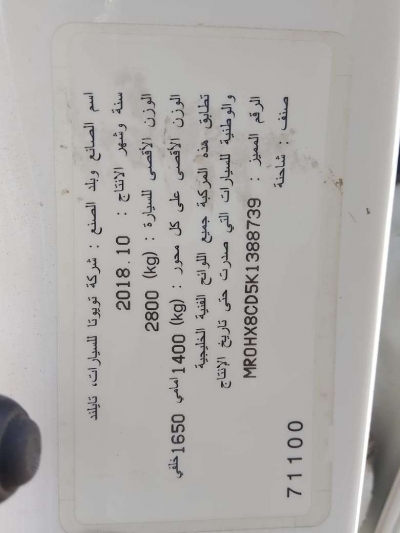 اسم الصانع وبلد الصنع : شركة تويوتا للسيارات، تايلند
سنة وشهر الانتاج : 2018.10
الوزن الأقصى للسيارة : 2800 (kg)
الوزن الأقصى على كل محور : 1400 (kg) امامي 1650 خلفي
تطابق هذه المركبة جميع اللوائح الفنية الخليجية
والوطنية للسيارات التي صدرت حتى تاريخ الإنتاج
الرقم المميز : MR0HX8CD5K1388739
صنف : شاحنة
71100